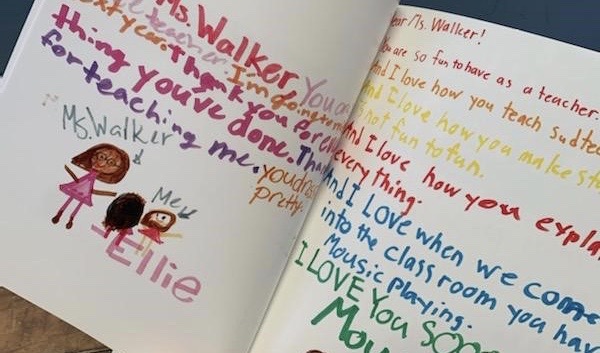 Ms. Walker You a
teacher. I'm going to m
next year. Thank you for ev
thing you've done. Tha
for teaching me. you dres
pretty.
Ms. Walker
Me
Ellie
ear Ms. Walker!
ou are so fun to have as a teacher.
nd I love how you teach
And I love how you make st
s not fun to fun.
And I love how you expla
everything.
And I LOVE when we come
into the class room you hav
Mousic playing.
I LOVE YOU SOOO